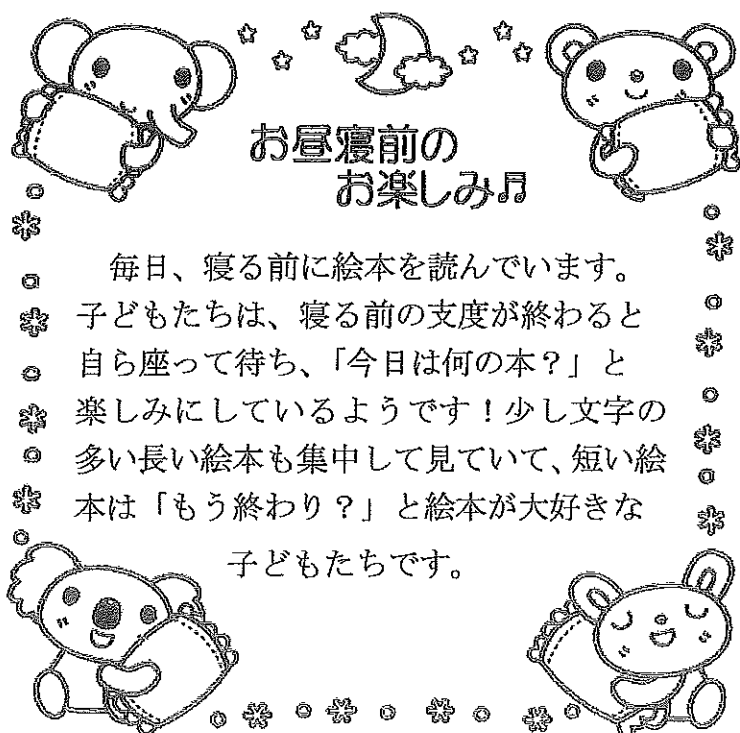 お昼寝前の
お楽しみ♬
毎日、寝る前に絵本を読んでいます。
子どもたちは、寝る前の支度が終わると
自ら座って待ち、「今日は何の本？」と
楽しみにしているようです！少し文字の
多い長い絵本も集中して見ていて、短い絵
本は「もう終わり？」と絵本が大好きな
子どもたちです。